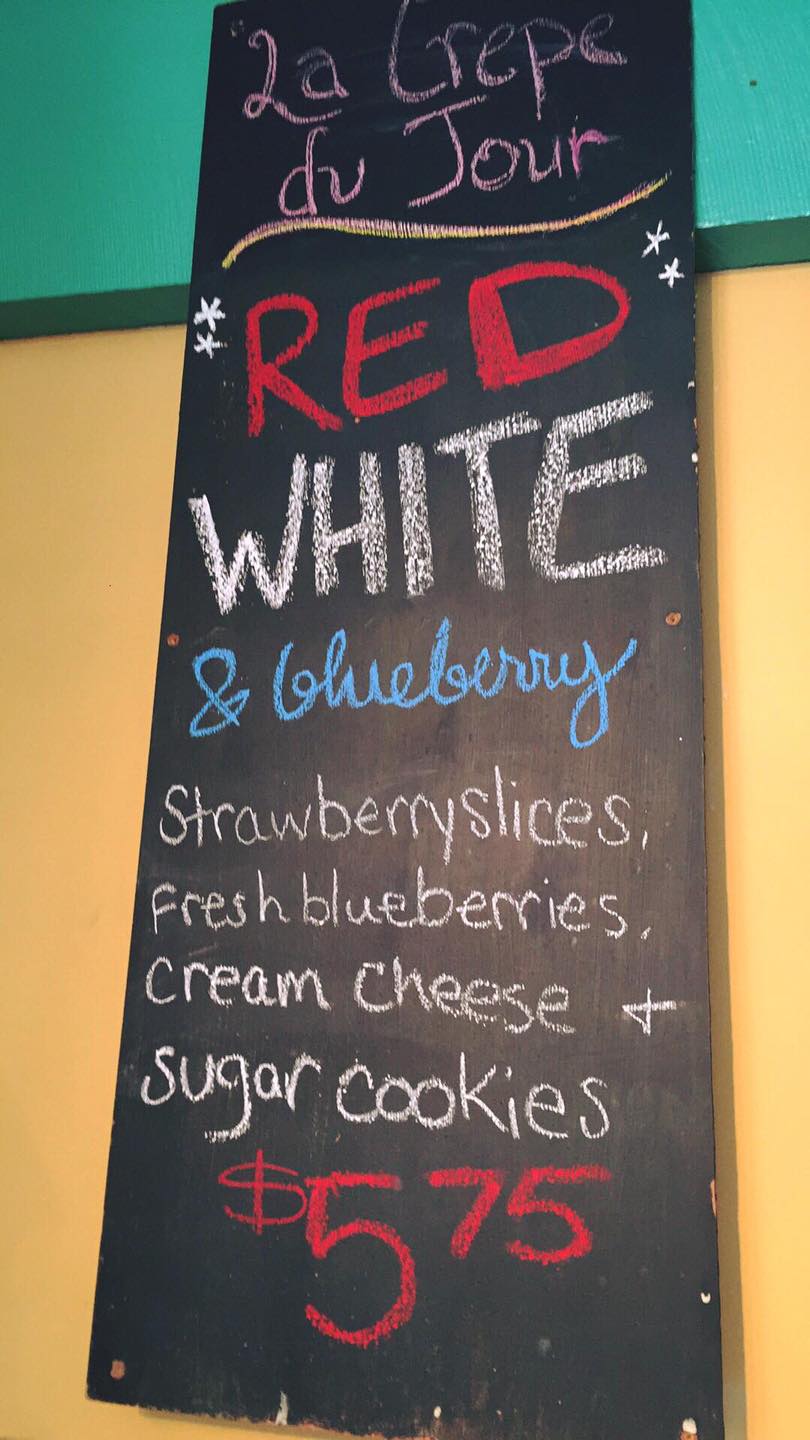 La Crepe
du Jour
RED
WHITE
& blueberry
Strawberry slices,
Fresh blueberries,
cream cheese +
sugar cookies
$5 75